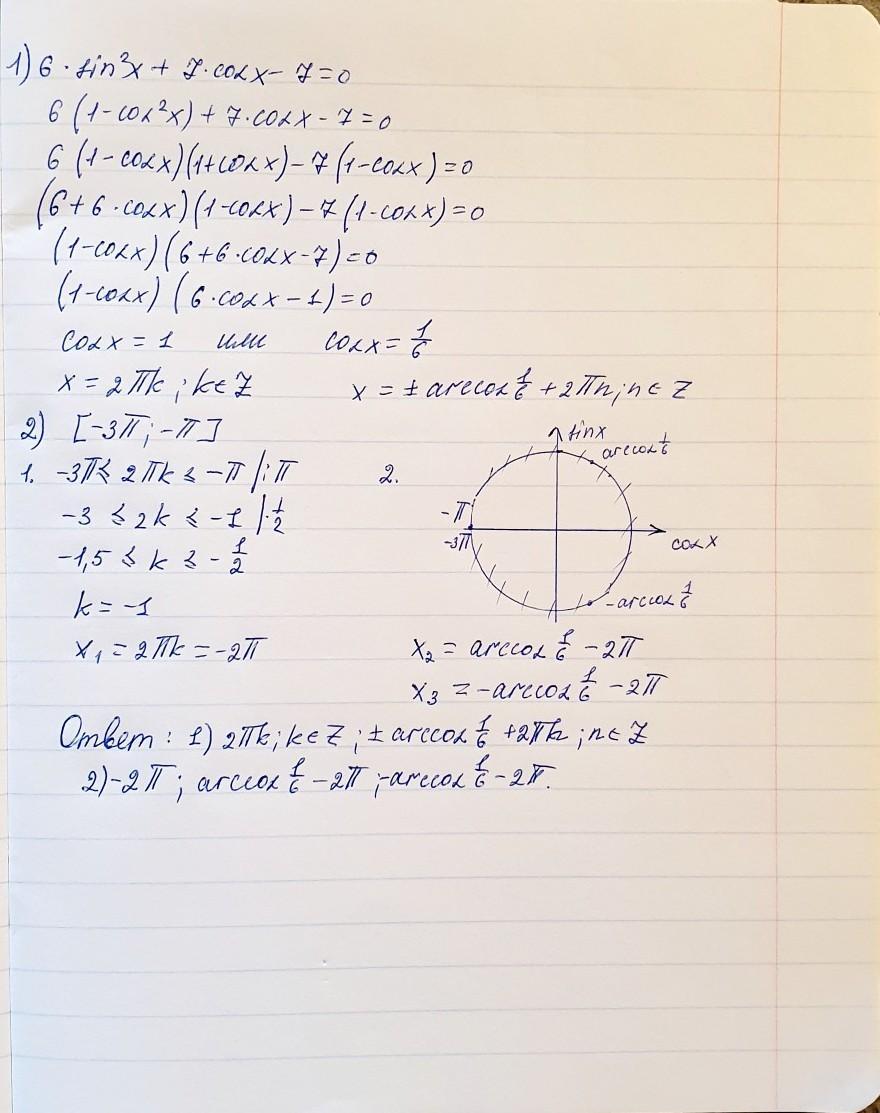 1) 6 · sin²x + 7·cosx − 7 = 0
6 (1 − cos²x) + 7·cosx − 7 = 0
6 (1 − cosx)(1 + cosx) − 7 (1 − cosx) = 0
(6 + 6·cosx)(1 − cosx) − 7 (1 − cosx) = 0
(1 − cosx)(6 + 6·cosx − 7) = 0
(1 − cosx) (6·cosx − 1) = 0
cosx = 1 или cosx = 1/6
x = 2πk ; k ∈ Z x = ± arccos 1/6 + 2πn ; n ∈ Z
2) [−3π ; −π]
1. −3π ≤ 2πk ≤ −π |:π
−3 ≤ 2k ≤ −1 |· 1/2
−1,5 ≤ k ≤ − 1/2
k = −1
x₁ = 2πk = −2π
2.
sinx
arccos 1/6
−π
−3π
cosx
−arccos 1/6
x₂ = arccos 1/6 − 2π
x₃ = −arccos 1/6 − 2π
Ответ : 1) 2πk ; k ∈ Z ; ± arccos 1/6 + 2πn ; n ∈ Z
2) −2π ; arccos 1/6 − 2π ; −arccos 1/6 − 2π.